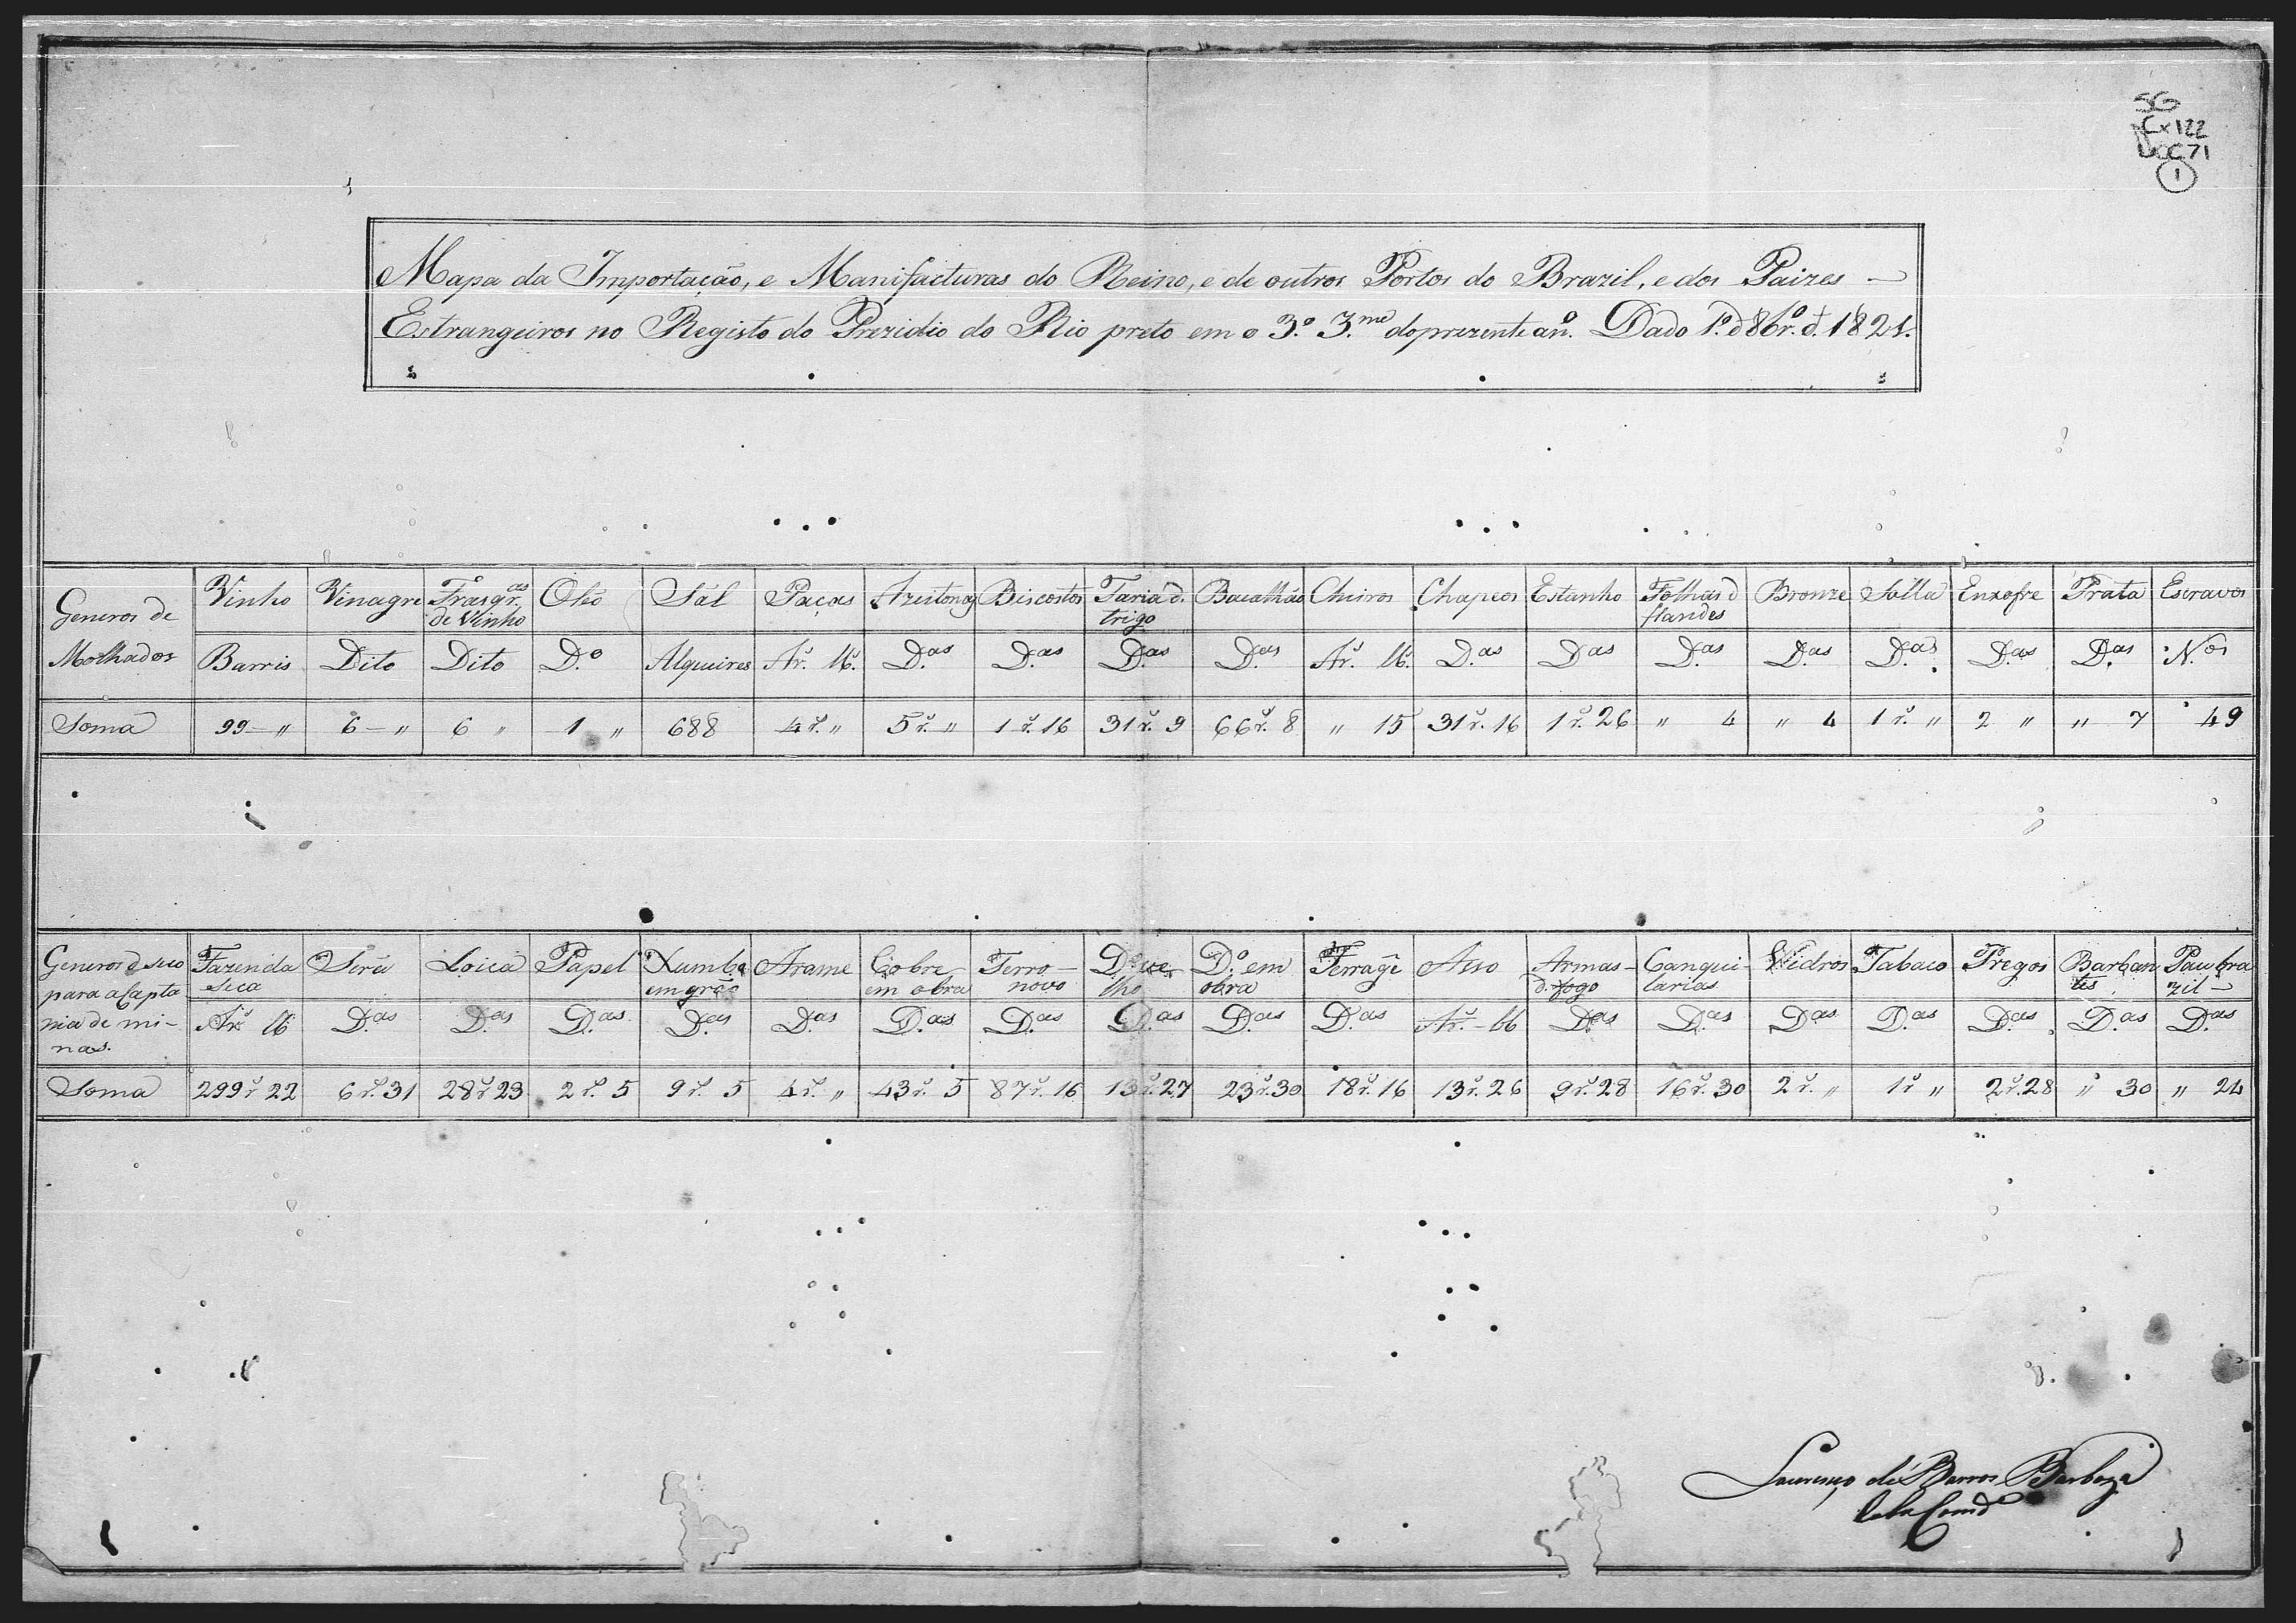 SG
Cx122
DOC71
1
Mapa da Importação, e Manifacturas do Reino, e de outros Portos do Brazil, e dos Paizes —
Estrangeiros no Registo do Prezidio do Rio preto em o 3.º 3.me do prezente an.º Dado 1.º d 8br.º d 1821.
Generos de Molhados | Vinho | Vinagre | Frasqr.as de Vinho | Olio | Sál | Paças | Azeitonas | Biscoitos | Faria d. trigo | Bacalháo | Chiiros | Chapeos | Estanho | Folhas d flandes | Bronze | Solla | Enxofre | Prata | Escravos
Barris | Dito | Dito | D.º | Alqueires | Ar.s lb.s | D.as | D.as | D.as | D.as | Ar.s lb. | D.as | D.as | D.as | D.as | D.as | D.as | D.as | N.os
Soma | 99 — " | 6 — " | 6 " | 1 " | 688 | 4 r.s " | 5 r.s " | 1 r.s 16 | 31 r.s 9 | 66 r.s 8 | " 15 | 31 r.s 16 | 1 r.s 26 | " 4 | " 4 | 1 r.s " | 2 " | " 7 | 49
Generos d seco para a Capta nia de mi- nas. | Fazenda Seca | Sera | Loica | Papel | Xumbo em grão | Arame | Cobre em obra | Ferro — novo | D.º ve- lho | D.º em obra | Ferragẽ | Asso | Armas — d. fogo | Canqui- larias | Vidros | Tabaco | Pregos | Barban tes | Pau bra zil —
Ar.s lb | D.as | D.as | D.as | D.as | D.as | D.as | D.as | D.as | D.as | D.as | Ar.s - lb | D.as | D.as | D.as | D.as | D.as | D.as | D.as
Soma | 299 r.s 22 | 6 r.s 31 | 28 r.s 23 | 2 r.s 5 | 9 r.s 5 | 4 r.s " | 43 r.s 5 | 87 r.s 16 | 13 r.s 27 | 23 r.s 30 | 18 r.s 16 | 13 r.s 26 | 9 r.s 28 | 16 r.s 30 | 2 r.s " | 1 r.s " | 2 r.s 28 | " 30 | " 24
Lourenço de Barros Barboza
Comd.e